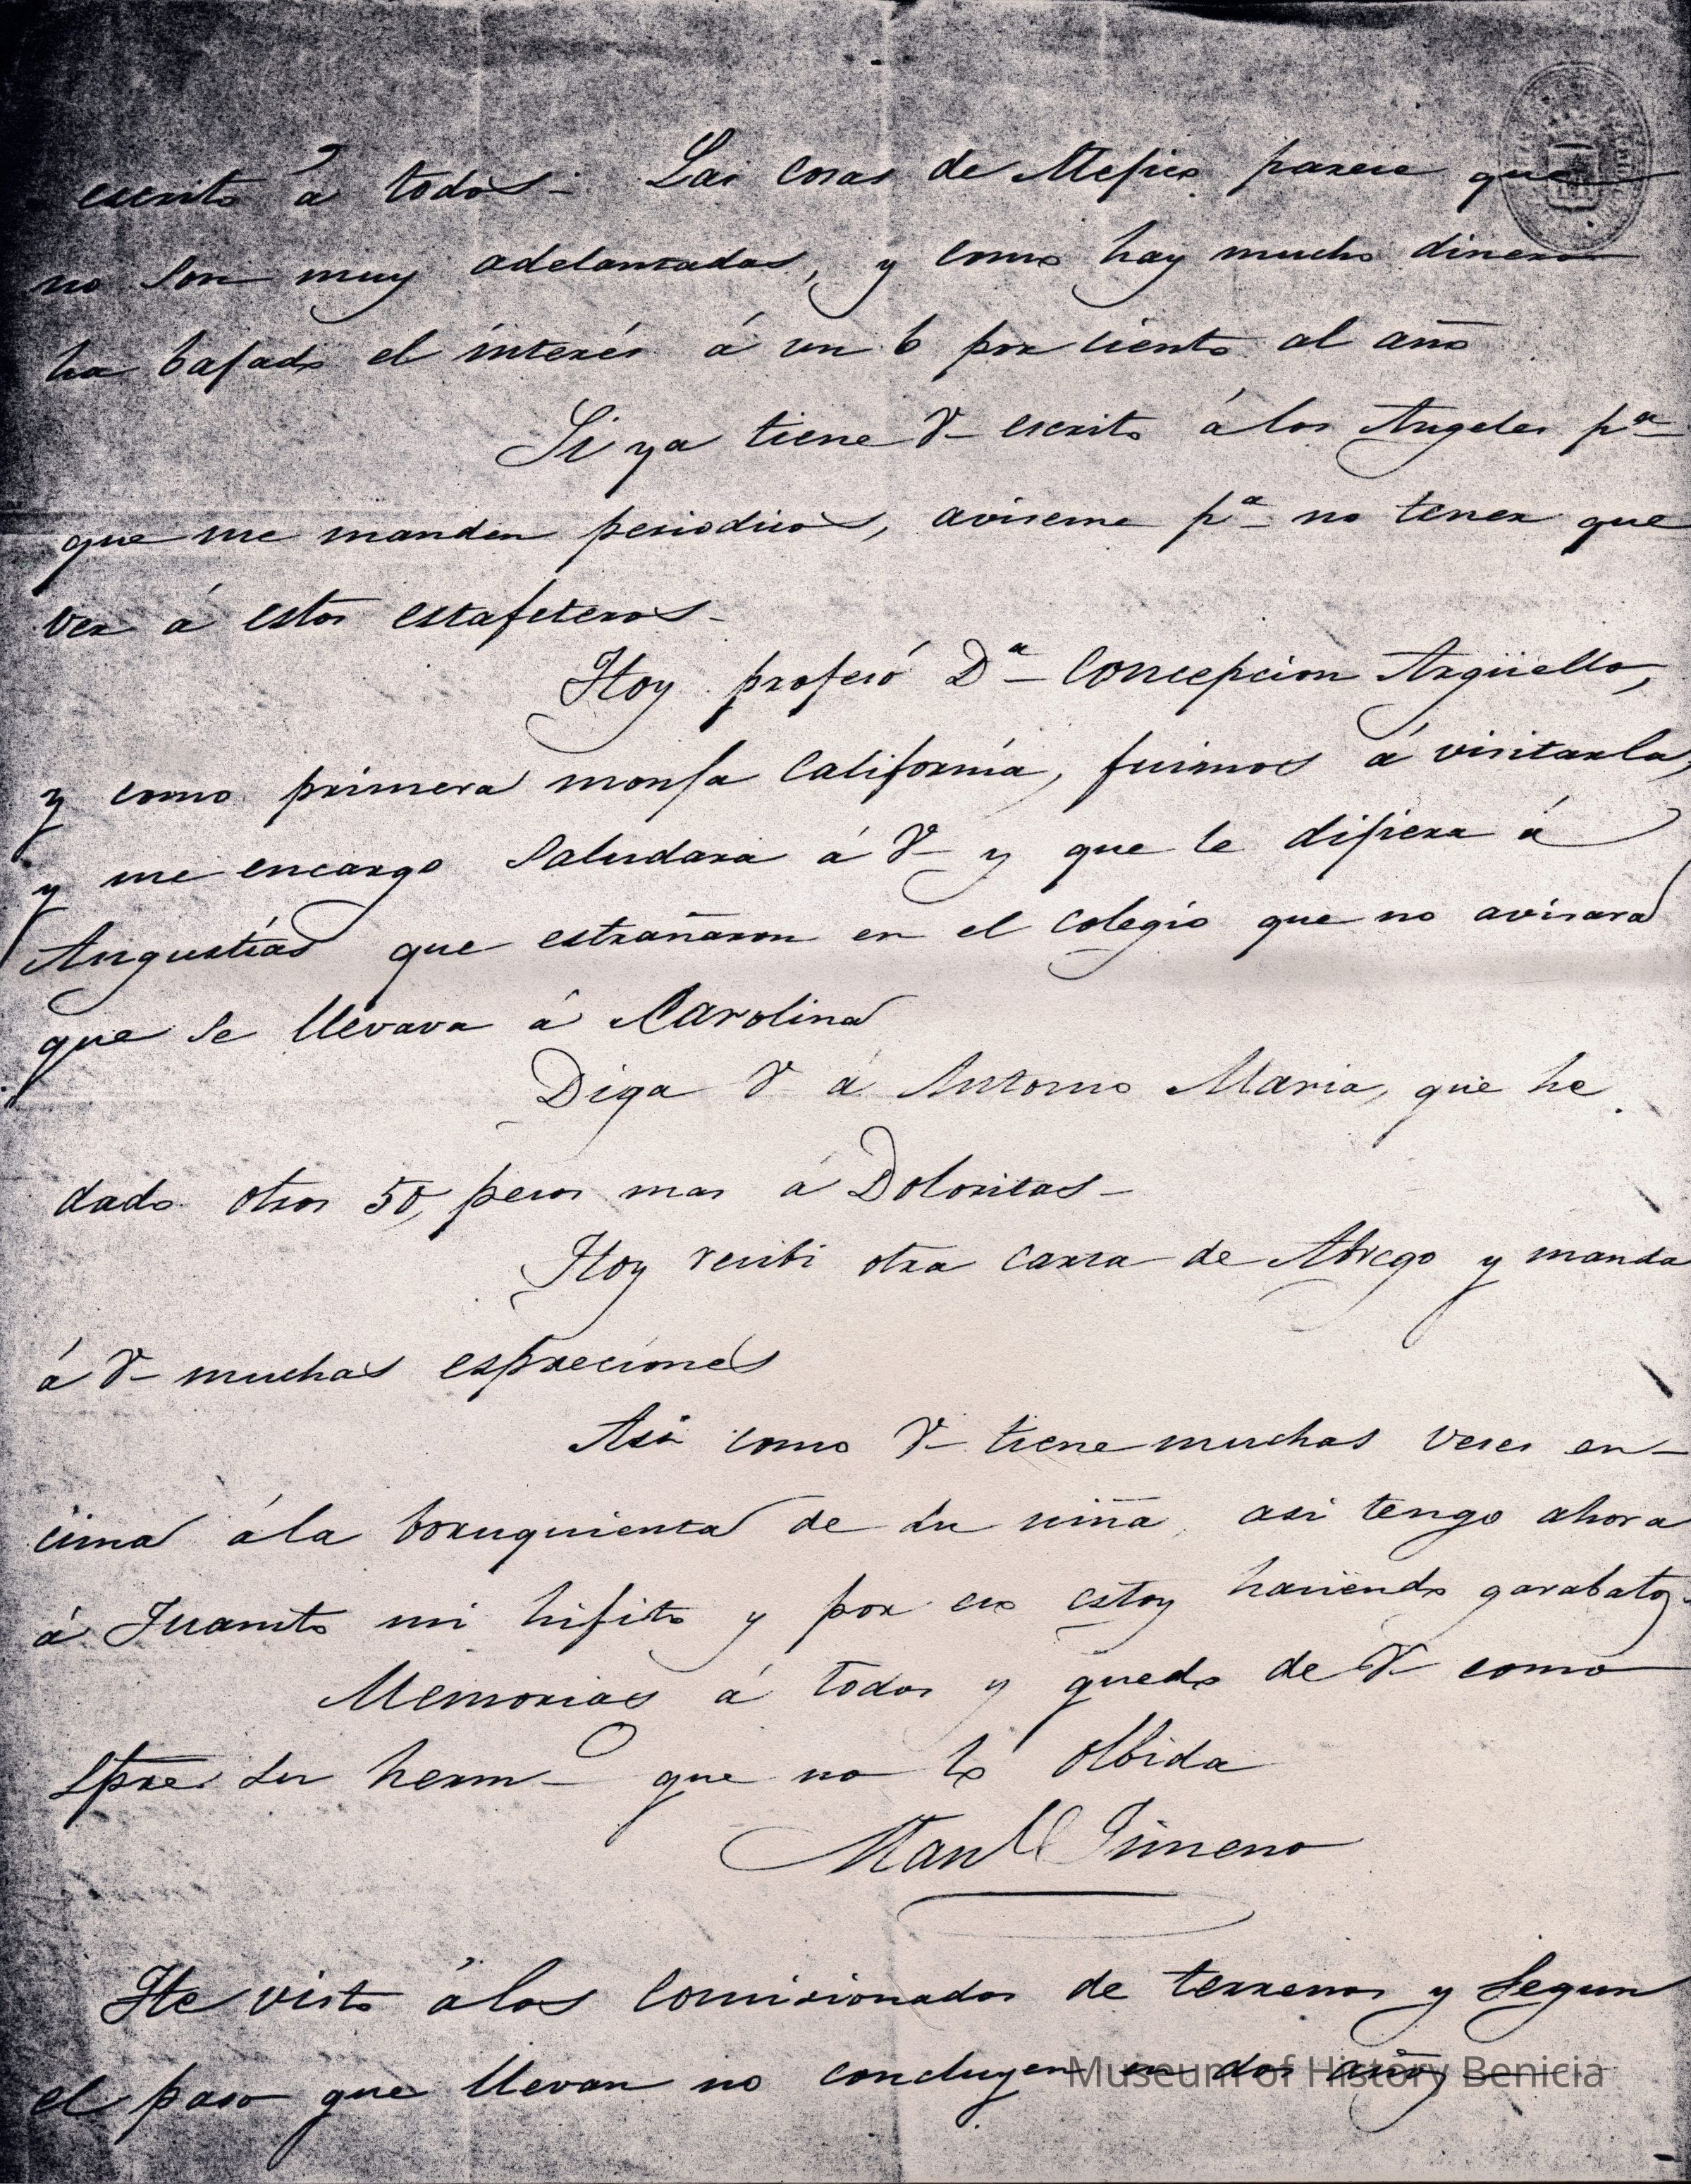 escrito á todos - Las cosas de Mejico parece que
no son muy adelantadas, y como hay mucho dinero
ha bajado el interés á un 6 por ciento al año
Si ya tiene V- escrito á los Angeles pª
que me manden periodicos, aviseme pª no tener que
ver á estos estafeteros -
Hoy profesó Dª Concepcion Argüello,
y como primera monja California, fuimos á visitarla,
y me encargo saludara á V- y que le dijiera á
Angustias que estrañaron en el colegio que no avisara
que se llevava á Carolina
Diga V á Antonio Maria, que he
dado otros 50, pesos mas á Doloritas -
Hoy recibi otra carta de Abrego y manda
á V- muchas espreciones
Asi como V- tiene muchas veces en-
cima á la boruquienta de su niña, asi tengo ahora
á Juanito mi hijito y por eso estoy haciendo garabatos.
Memorias á todos y quedo de V- como
Spre su hermº que no lo olbida
Manl Jimeno
He visto á los Comisionados de terrenos y segun
el paso que llevan no concluyen en dos años
Museum of History Benicia